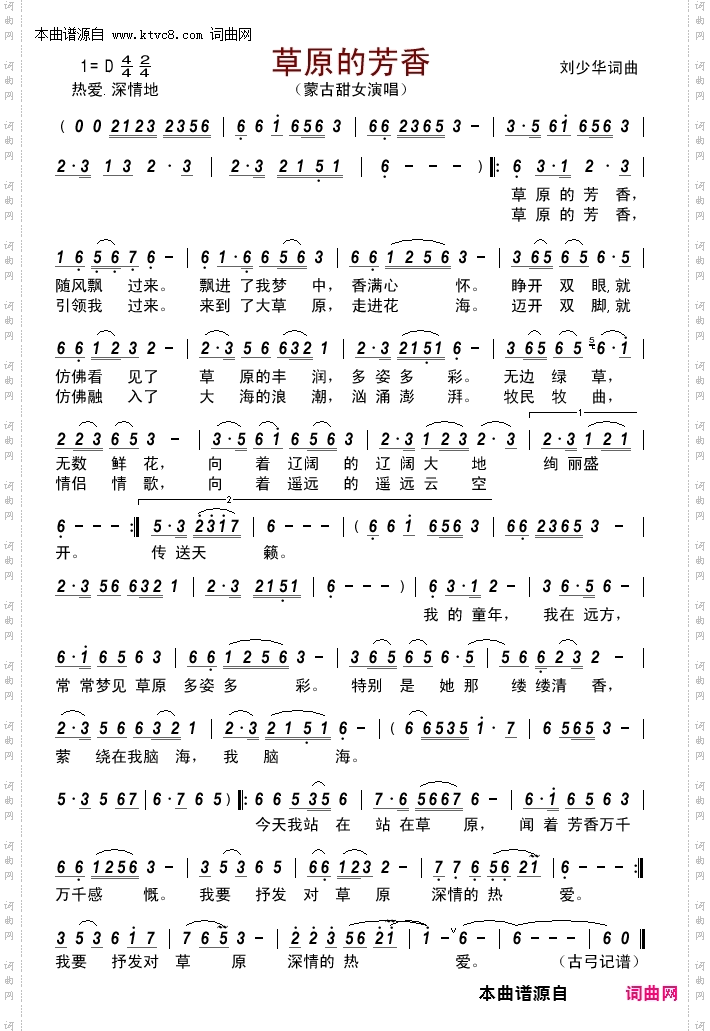 本曲谱源自 www.ktvc8.com 词曲网
1=D 4/4 2/4
草原的芳香
刘少华词曲
热爱.深情地
（蒙古甜女演唱）
( 0 0 2123 2356 | 6 6 i 6563 | 66 2365 3 - | 3·5 6i 6563 |
2·3 1 3 2·3 | 2·3 2 1 5 1 | 6 - - - ) |: 6 3·1 2·3 |
草 原 的 芳 香，
草 原 的 芳 香，
1 6 5 6 7 6 - | 6 1·6 6 5 6 3 | 6 6 1 2 5 6 3 - | 3 65 65 6·5 |
随风飘 过来。 飘进 了我梦 中，香满心 怀。 睁开 双 眼,就
引领我 过来。 来到 了大草 原，走进花 海。 迈开 双 脚,就
6 6 1 2 3 2 - | 2·3 5 6 6321 | 2·3 2151 6 - | 3 65 65 5 6·i |
仿佛看 见了 草 原的丰 润，多 姿 多 彩。 无边 绿 草，
仿佛融 入了 大 海的浪 潮，汹 涌 澎 湃。 牧民 牧 曲，
2 2 3 6 5 3 - | 3·5 6 i 6 5 6 3 | 2·3 1 2 3 2·3 | 2·3 1 2 1 |
1
无数 鲜 花， 向 着 辽阔 的 辽 阔 大 地 绚 丽盛
情侣 情 歌， 向 着 遥远 的 遥 远 云 空
2
6 - - - :| 5·3 2317 | 6 - - - | ( 6 6 i 6563 | 66 2365 3 - |
开。 传 送天 籁。
2·3 56 6321 | 2·3 2151 | 6 - - - ) | 6 3·1 2 - | 3 6·5 6 - |
我 的 童年， 我在 远方，
6·i 6 5 6 3 | 6 6 1 2 5 6 3 - | 3 6 5 6 5 6·5 | 5 6 6 2 3 2 - |
常 常梦见 草原 多姿 多 彩。 特别 是 她 那 缕 缕清 香，
2·3 5 6 6 3 2 1 | 2·3 2 1 5 1 6 - | ( 6 66535 i·7 | 6 5653 - |
萦 绕在我脑 海， 我 脑 海。
5·3 5 67 | 6·7 6 5 ) |: 6 6 5 35 6 | 7·6 5667 6 - | 6·i 6 5 6 3 |
今天我站 在 站 在草 原， 闻 着 芳香万千
6 6 12563 - | 3 5 3 6 5 | 66 123 2 - | 7 7 6 56 2i | 6 - - - :|
万千感 慨。 我要 抒发 对 草 原 深情的 热 爱。
3 5 3 6 i 7 | 7 6 5 - - | 2 2 3 56 2i | i - 6 - | 6 - - - | 6 0 ‖
我要 抒发对 草 原 深情的 热 爱。 （古弓记谱）
本曲谱源自 词曲网